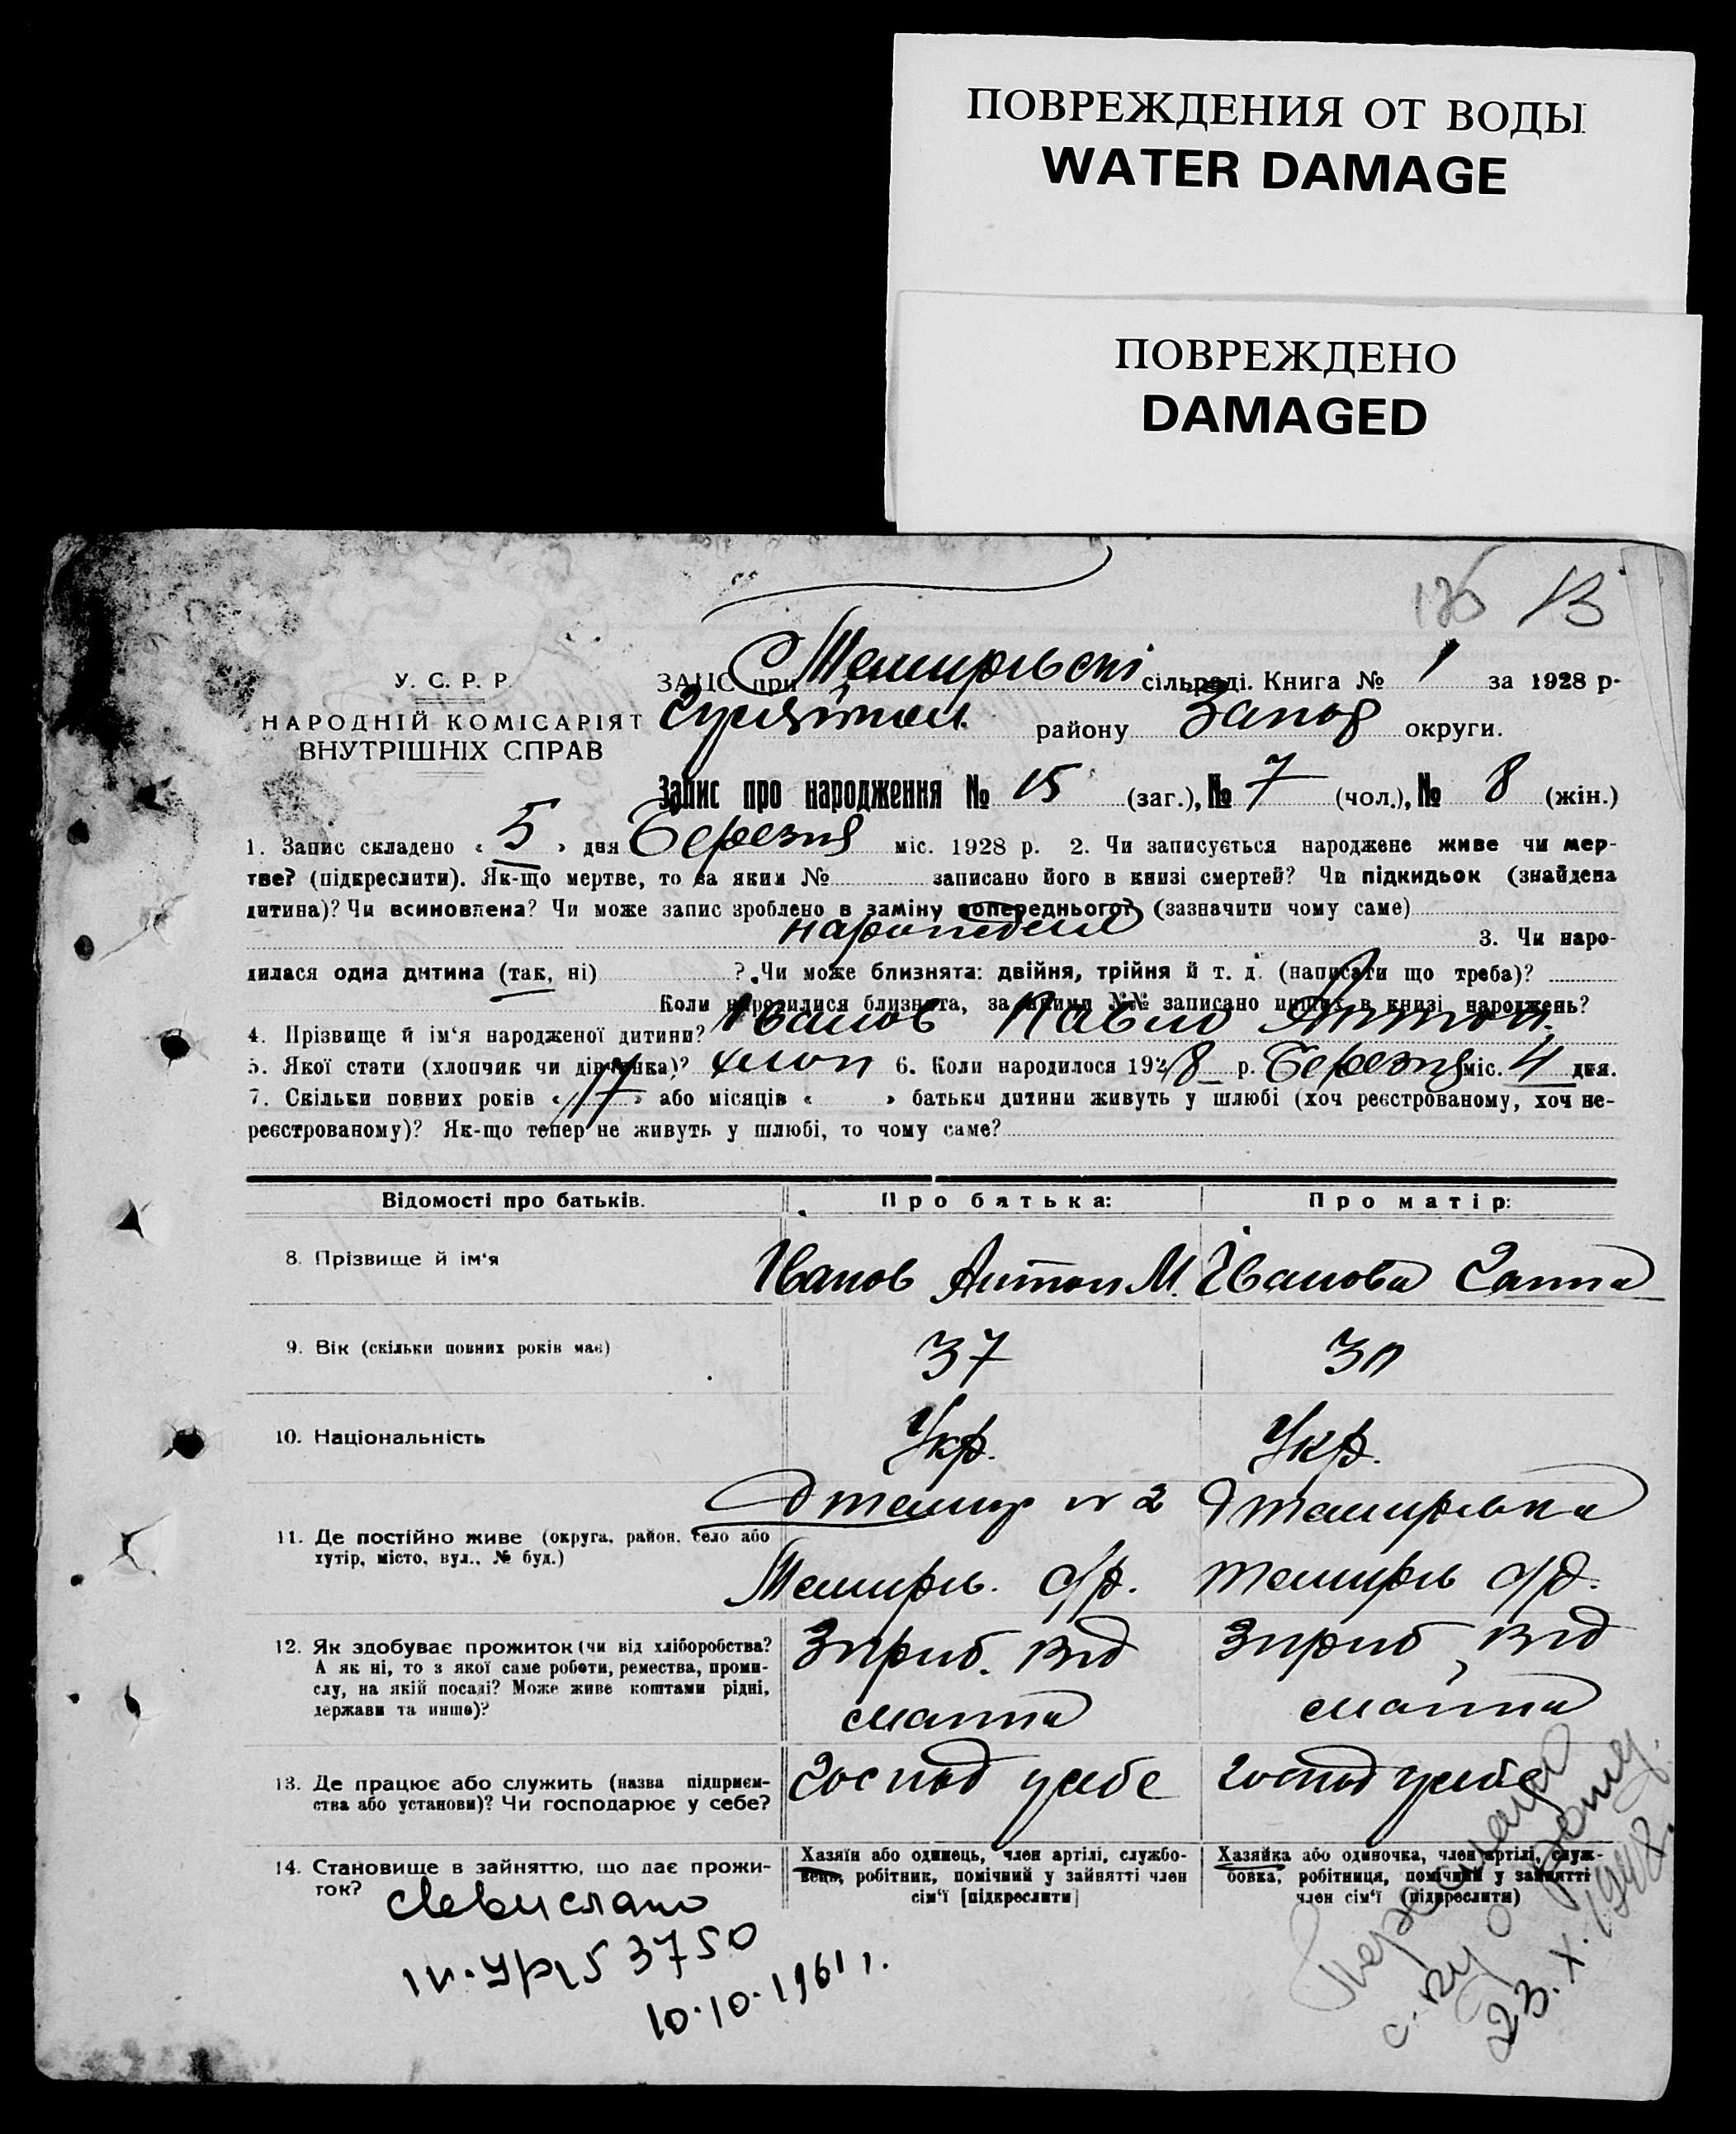 ПОВРЕЖДЕНИЯ ОТ ВОДЫ
WATER DAMAGE
ПОВРЕЖДЕНО
DAMAGED
13
У. С. Р. Р.
НАРОДНІЙ КОМІСАРІЯТ
ВНУТРІШНІХ СПРАВ
ЗАЦС при Темирівскі сільраді. Книга № 1 за 1928 р.
району Запор округи.
Запис про народження № 15 (заг.), № 7 (чол.), № 8 (жін.)
1. Запис складено « 5 » дня Березня міс. 1928 р. 2. Чи записується народжене живе чи мер-
тве? (підкреслити). Як-що мертве, то за яким № записано його в книзі смертей? Чи підкидьок (знайдена
дитина)? Чи всиновлена? Чи може запис зроблено в заміну попереднього? (зазначити чому саме)
3. Чи наро-
дилася одна дитина (так, ні) ? Чи може близнята: двійня, трійня й т. д. (написати що треба)?
Коли народилися близнята, за якими №№ записано инших в книзі народжень?
4. Прізвище й ім‘я народженої дитини? Іванов Павло Антон.
5. Якої стати (хлопчик чи дівчинка)? хлоп 6. Коли народилося 1928 р. Березня міс. 4 дня.
7. Скільки повних років « 17 » або місяців « » батьки дитини живуть у шлюбі (хоч реєстрованому, хоч не-
реєстрованому)? Як-що тепер не живуть у шлюбі, то чому саме?
Відомості про батьків. Про батька: Про матір:
8. Прізвище й ім‘я Іванов Антон М. Іванова Ганна
9. Вік (скільки повних років має) 37 3п
10. Національність Укр. Укр.
11. Де постійно живе (округа, район, село або
хутір, місто, вул., № буд.)
Темирів. с/р. Темирів с/р.
12. Як здобуває прожиток (чи від хліборобства?
А як ні, то з якої саме роботи, ремества, проми-
слу, на якій посаді? Може живе коштами рідні,
держави та инше)?
Зприб. від Зприб від
13. Де працює або служить (назва підприєм-
ства або установи)? Чи господарює у себе?
Господ у себе Господ у себе
14. Становище в зайняттю, що дає прожи-
ток?
Хазяїн або одинець, член артілі, службо-
вець, робітник, помічний у зайнятті член
сім‘ї [підкреслити]
Хазяйка або одиночка, член артілі, служ-
бовка, робітниця, помічний у зайнятті
член сім‘ї (підкреслити)
3750
10.10.1961 г.
23. X. 1948.